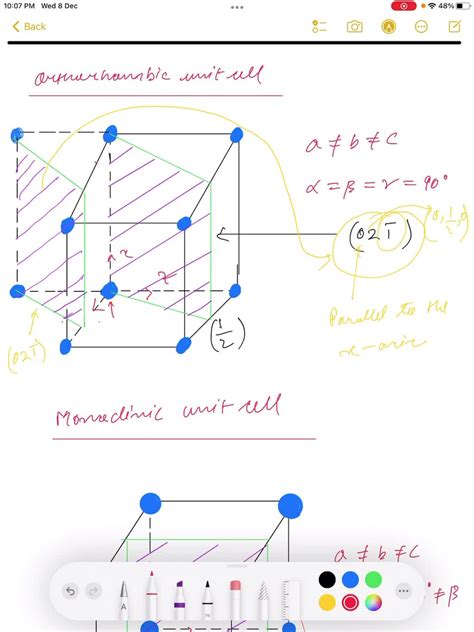 10:07 PM Wed 8 Dec
48%
Back
Orthorhombic unit cell
a ≠ b ≠ c
α = β = γ = 90°
(02T)
0, 1/2, 1
Parallel to the
x-axis
x
z
(1/2)
(02T)
Monoclinic unit cell
a ≠ b ≠ c
° ≠ β
A